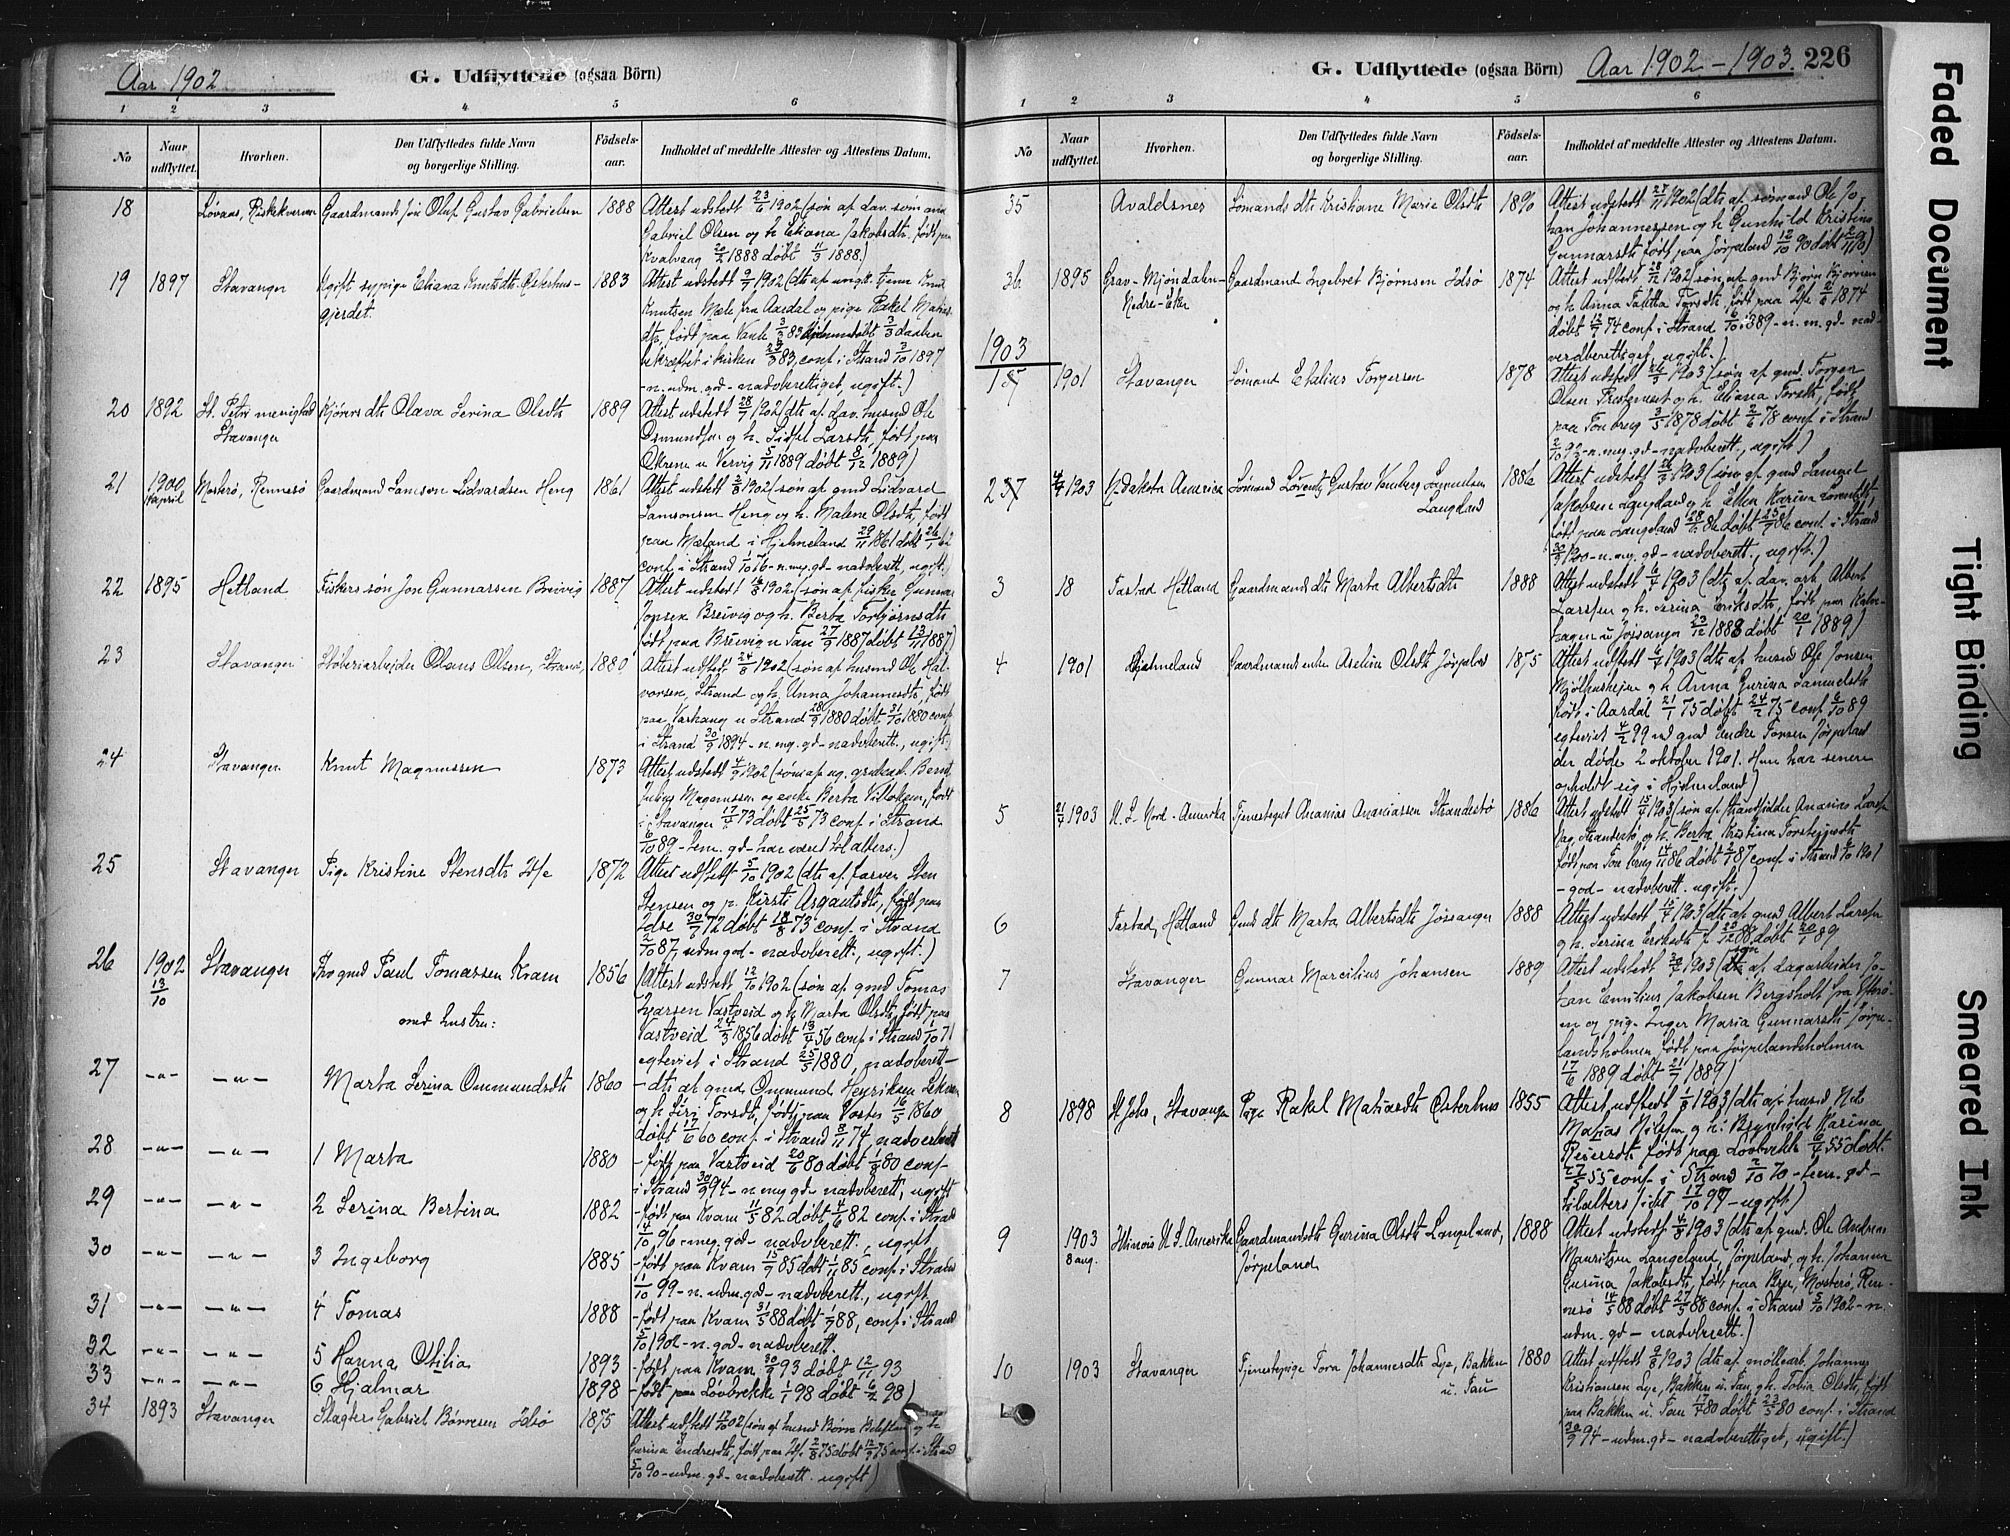 Aar 1902
G. Udflyttede (ogsaa Börn)
1 2 3 4 5 6
No
Naar udflyttet.
Hvorhen.
Den Udflyttedes fulde Navn
og borgerlige Stilling.
Födsels-
aar.
Indholdet af meddelte Attester og Attestens Datum.
18 Gaardmands søn Oluf Gustav Gabrielsen 1888 Attest udstedt 23/6 1902 (søn af
Gabriel Olsen og h. Eliana Jakobsdtr. født paa
1888 døbt 11/3 1888.)
19 1897 Stavanger Ugift sypige Eliana Knutsdtr 1883 Attest udstedt 1902 (dtr af ungk.
gjerdet.
Knutsen Mæle fra Aardal og pige Rakel
bekræftet i kirken 83, conf. i Strand 3/10 1897
- n. udm. gd - nadvberettiget, ugift.)
20 1892 St. Petri menighed Olava Serina Olsdtr 1889 Attest udstedt 28/7 1902 (dtr af
Stavanger
Osmundsen og h. Sidsel Larsdtr, født paa
1889 døbt 8/12 1889)
21 1900 Mosterø, Rennesø Gaardmand Samson Sidvardsen Heng 1861 Attest udstedt 1902 (søn af gmd Sidvard
april
Samsonsen Heng og h. Malene Olsdtr, født
paa Mæland i Hjelmeland 29/11 1861 døbt
conf. i Strand 1/10 76 - n. meg. gd - nadvberett, ugift.
22 1895 Hetland Fiskers søn Jon Gunnarsen Breivig 1887 Attest udstedt 1902 (søn af fisker Gunnar
Jonsen Breivig og h. Berta Torbjørnsdtr
født paa Breivig u Tau 27/9 1887 døbt 13/11 1887)
23 Stavanger Olaus Olsen, Strand, 1880 Attest udstedt 24/8 1902 (søn af husmd Ole Hal-
vorsen, Strand og h. Anna Johannesdtr, født
paa u Strand 28/9 1880 døbt 31/10 1880 conf
i Strand 30/9 1894 - n. meg. gd - nadvberett., ugift.)
24 Stavanger Knut Magnussen 1873 Attest udstedt 4/9 1902
Julius Magnussen og enke Berta født
i Stavanger 17/4 73 døbt 25/5 73 conf. i Strand
6/10 89 - tem. gd - har været til alters.)
25 Stavanger Pige Kristine Stensdtr Idse 1872 Attest udstedt 5/10 1902 (dtr af farver Sten
Stensen og p. Kirsti født paa
Idse 30/6 72 døbt 18/8 73 conf. i Strand
2/10 87, udm god - nadvberett, ugift.)
26 1902 Stavanger Fho gmd Paul Tomassen Kvam 1856 Attest udstedt 12/10 1902 (søn af gmd Tomas
13/10
med hustru:
Ivarsen Vastveid og h. Marta Olsdtr, født paa
Vastveid 24/3 1856 døbt 13/4 56 conf i Strand 1/10 71
egteviet i Strand 25/5 1880, nadvberett -
27 -"- -"- Marta Serina Ommundsdtr 1860 - dtr af gmd Ommund Henriksen
og h. Siri Torsdtr, født paa 16/5 1860
døbt 17/6 60 conf. i Strand 8/11 74, nadvberett
28 -"- -"- 1 Marta 1880 - født paa Vastveid 20/6 80 døbt 1/8 80 conf
i Strand 30/9 94 - n meg gd - nadvberett, ugift
29 -"- -"- 2 Serina Bertina 1882 - født paa Kvam 11/5 82 døbt 4/6 82 conf. i Strand
4/10 96 - meg. gd - nadvberett., ugift
30 -"- -"- 3 Ingeborg 1885 - født paa Kvam 15/9 85 døbt 1/11 85 conf. i Strand
1/10 99 - n. udm. gd - nadvberett., ugift
31 -"- -"- 4 Tomas 1888 - født paa Kvam 31/5 88 døbt 1/7 88, conf. i Strand
5/10 1902 - n. gd - nadvberett.
32 -"- -"- 5 Hanna Otilia 1893 - født paa Kvam 30/9 93 døbt 12/11 93
33 -"- -"- 6 Hjalmar 1898 - født paa Løvbrekke 1/1 98 døbt 6/2 98)
34 1893 Stavanger Slagter Gabriel Børresen Idsø 1875 Attest udstedt 17/10 02 (søn af husmd
Gurina Endresdtr, født paa Idse 2/8 75 døbt 12/9 75 conf. i Strand
5/10 90 - udm. gd - nadvberett. ugift)
G. Udflyttede (ogsaa Börn) Aar 1902 - 1903. 226
1 2 3 4 5 6
No
Naar udflyttet.
Hvorhen.
Den Udflyttedes fulde Navn
og borgerlige Stilling.
Födsels-
aar.
Indholdet af meddelte Attester og Attestens Datum.
35 Avaldsnes Sømands dtr Kristiane Marie Olsdtr 1890 Attest udstedt 1902 (dtr af sømand Ole Jo-
han Johannessen og h Gunhild Kristina
Gunnarsdtr født paa Jørpeland 12/10 90 døbt
36 1895 Grav - Mjøndalen - Gaardmand Ingebret Bjørnsen Idsø 1874 Attest udstedt 1902 (søn af gmd Bjørn Bjørnsen
Nedre-Eker
og h Anna Talitta Torsdtr, født paa Idse 1874
døbt 12/7 74 conf i Strand 6/10 1889 - n. m. gd - nad-
verdberettiget, ugift.)
1903
1 1901 Stavanger Sømand Etalius Torgersen 1878 Attest udstedt 1903 (søn af gmd. Torger
Olsen og h. Eliana Torsdtr, født
paa 3/5 1878 døbt 2/6 78 conf. i Strand
2/10 92 - n. meg. gd - nadvberett., ugift)
2 4/4 1903 N. Dakota Amerika Sømand Lorents Gustav Samuelsen 1886 Attest udstedt 1903 (søn af gmd Samuel
Langeland
Jakobsen Langeland og h. Ellen Karina Lorentsdtr,
født paa Langeland 86 døbt 86 conf. i Strand
30/9 1900 - n. meg. gd - nadvberett., ugift.)
3 18 Tastad Hetland Gaardmands dtr Marta Albertsdtr 1888 Attest udstedt 6/4 1903 (dtr af dav. arb Albert
Larssen og h. Serina Eriksdtr, født paa
hagen u Jøssanger 23/12 1888 døbt 20/1 1889)
4 1901 Hjelmeland Gaardmands enke Aselin Olsdtr Jørpeland 1875 Attest udstedt 1903 (dtr af husmd Ole Jonsen
og h Anna Gurina Samuelsdtr
født i Aardal 21/1 75 døbt 24/2 75 conf. 6/10 89
egteviet 4/2 99 m gmd Endre Tomsen Jørpeland
der døde 2 oktober 1901. Hun har senere
opholdt sig i Hjelmeland)
5 21/4 1903 U. S. Nord-Amerika Tjenestegut Ananias Ananiassen Strandastø 1886 Attest udstedt 15/4 1903 (søn af strandsidder Ananias Larssen
Strandastø og h. Berta Kristina Torsteinsdtr
født paa 14/11 86 døbt 87 conf i Strand 6/10 1901
- god - nadvberett. ugift.)
6 Tastad, Hetland Gmds dtr Marta Albertsdtr Jøssanger 1888 Attest udstedt 15/4 1903 (dtr af gmd Albert Larssen
og h. Serina Eriksdtr f 23/12 88 døbt 20/1 89
7 Stavanger Gunnar Marcilius Johansen 1889 Attest udstedt 1903 (søn af dagarbeider Jo-
han Emilius Jakobsen Bergsholt fra
en og pige Inger Maria Gunnarsdtr Jørpe-
landsholmen født paa Jørpelandsholmen
17/6 1889 døbt 21/7 1889)
8 1898 St Johs, Stavanger Pige Rakel Matiasdtr Østerhus 1855 Attest udstedt 1903 (dtr af husmd Nils
Matias Nilssen og h. Brynhild Karina
Reiersdtr født paa Løvbrekke 6/4 55 døbt
55 conf. i Strand 2/10 70 - tem. gd -
tilalters sidst 17/10 97 - ugift)
9 1903 Illinois U. S. Amerika Gaardmandsdtr Gurina Olsdtr Langeland, 1888 Attest udstedt 4/8 1903 (dtr af gmd. Ole Andreas
8 aug. Jørpeland
Mauritzen Langeland, Jørpeland, og h. Johanna
Gurina Jakobsdtr, født paa Bru, Mosterø, Ren-
nesø 14/5 88 døbt 27/5 88 conf. i Strand 5/10 1902 - n.
udm. gd - nadvberett.)
10 1903 Stavanger Tjenestepige Tora Johannesdtr Lye, Bakken 1880 Attest udstedt 9/8 1903 (dtr af møllearb. Johannes
u. Tau
Kristiansen Lye, Bakken u. Tau og h. Tobia Olsdtr, født
paa Bakken u. Tau 17/4 80 døbt 23/5 80 conf. i Strand
30/9 94 - udm. gd - nadvberettiget, ugift.)
Faded Document
Tight Binding
Smeared Ink